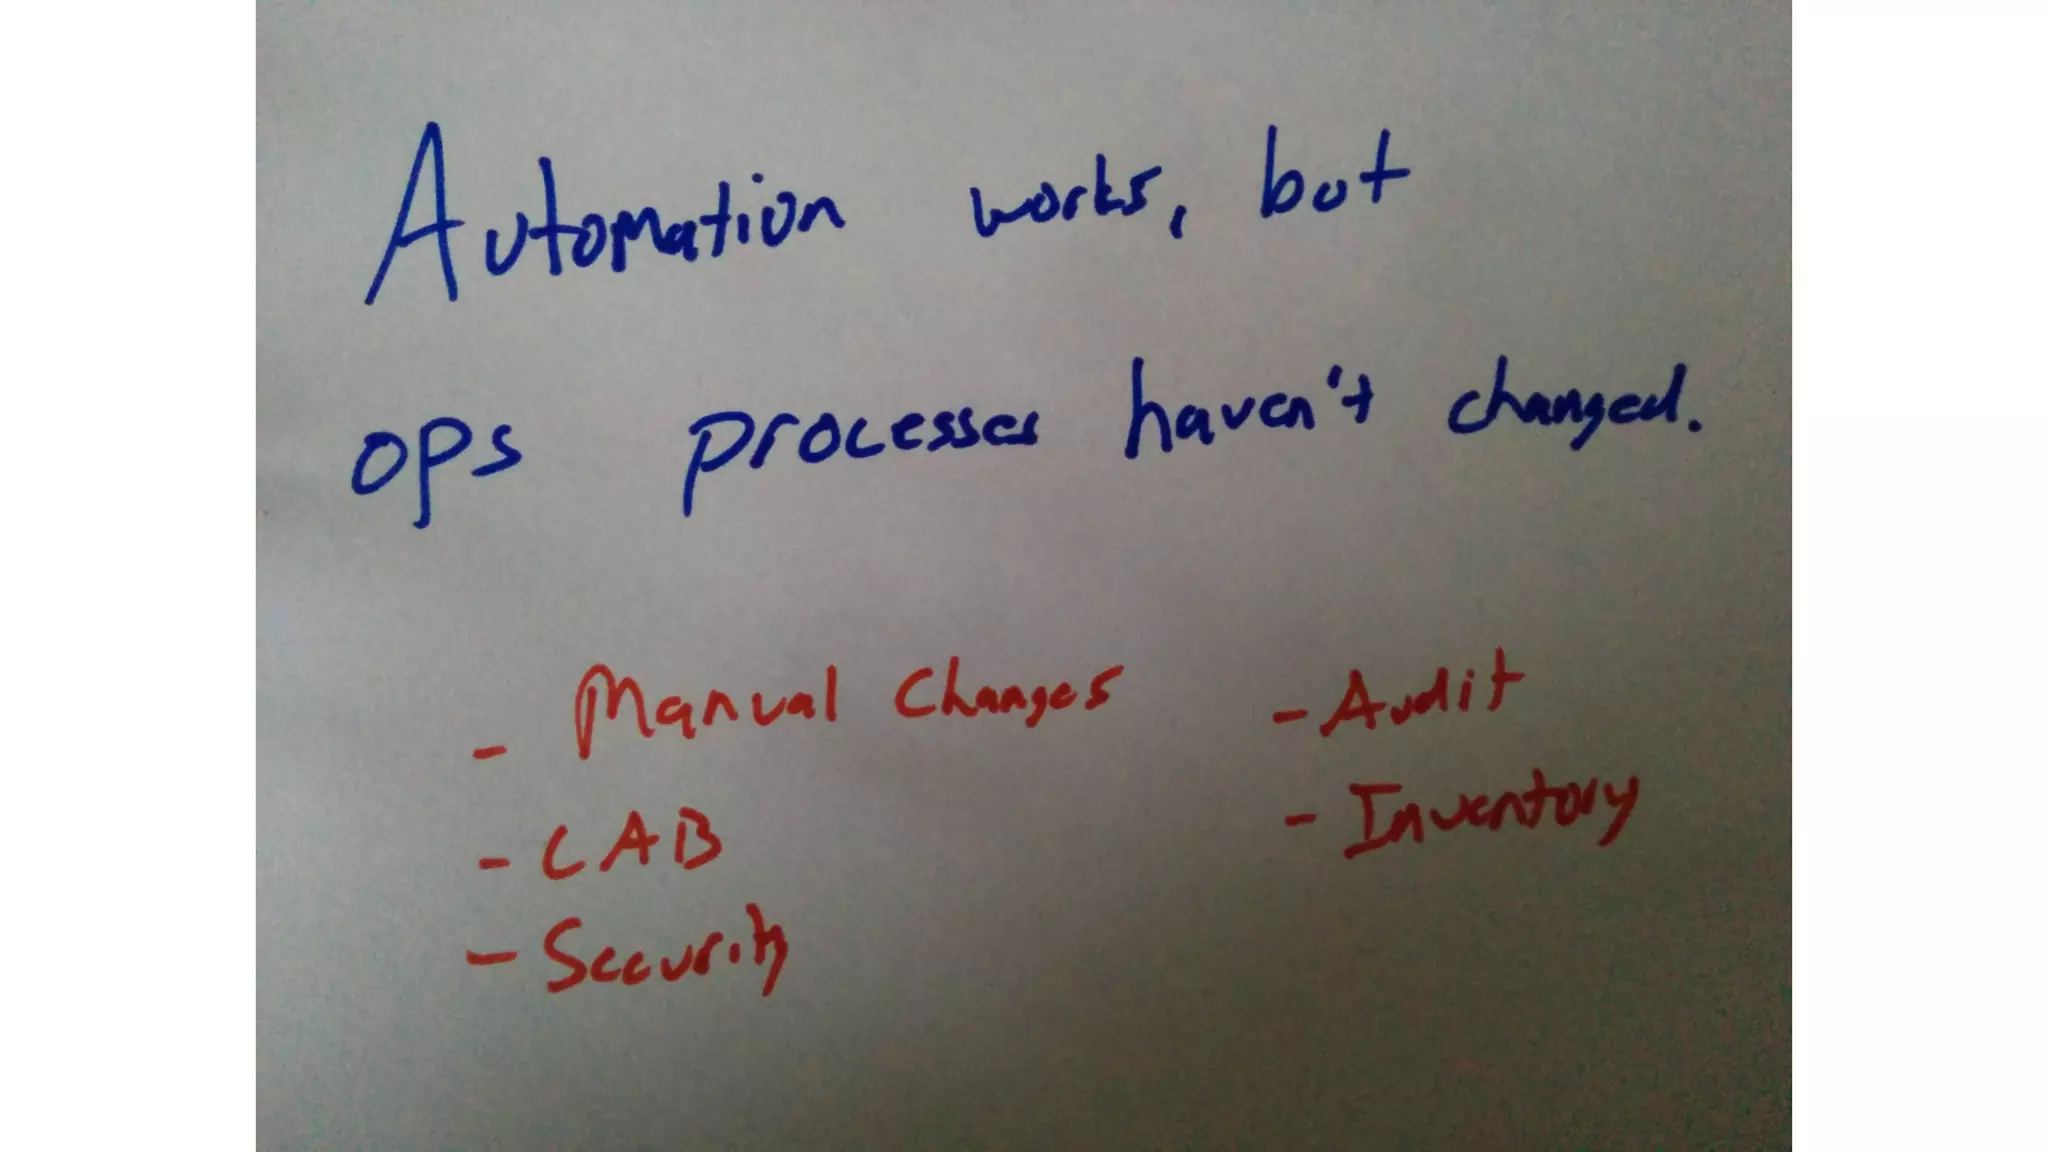 Automation works, but
ops processes haven't changed.
- Manual Changes
- CAB
- Security
- Audit
- Inventory